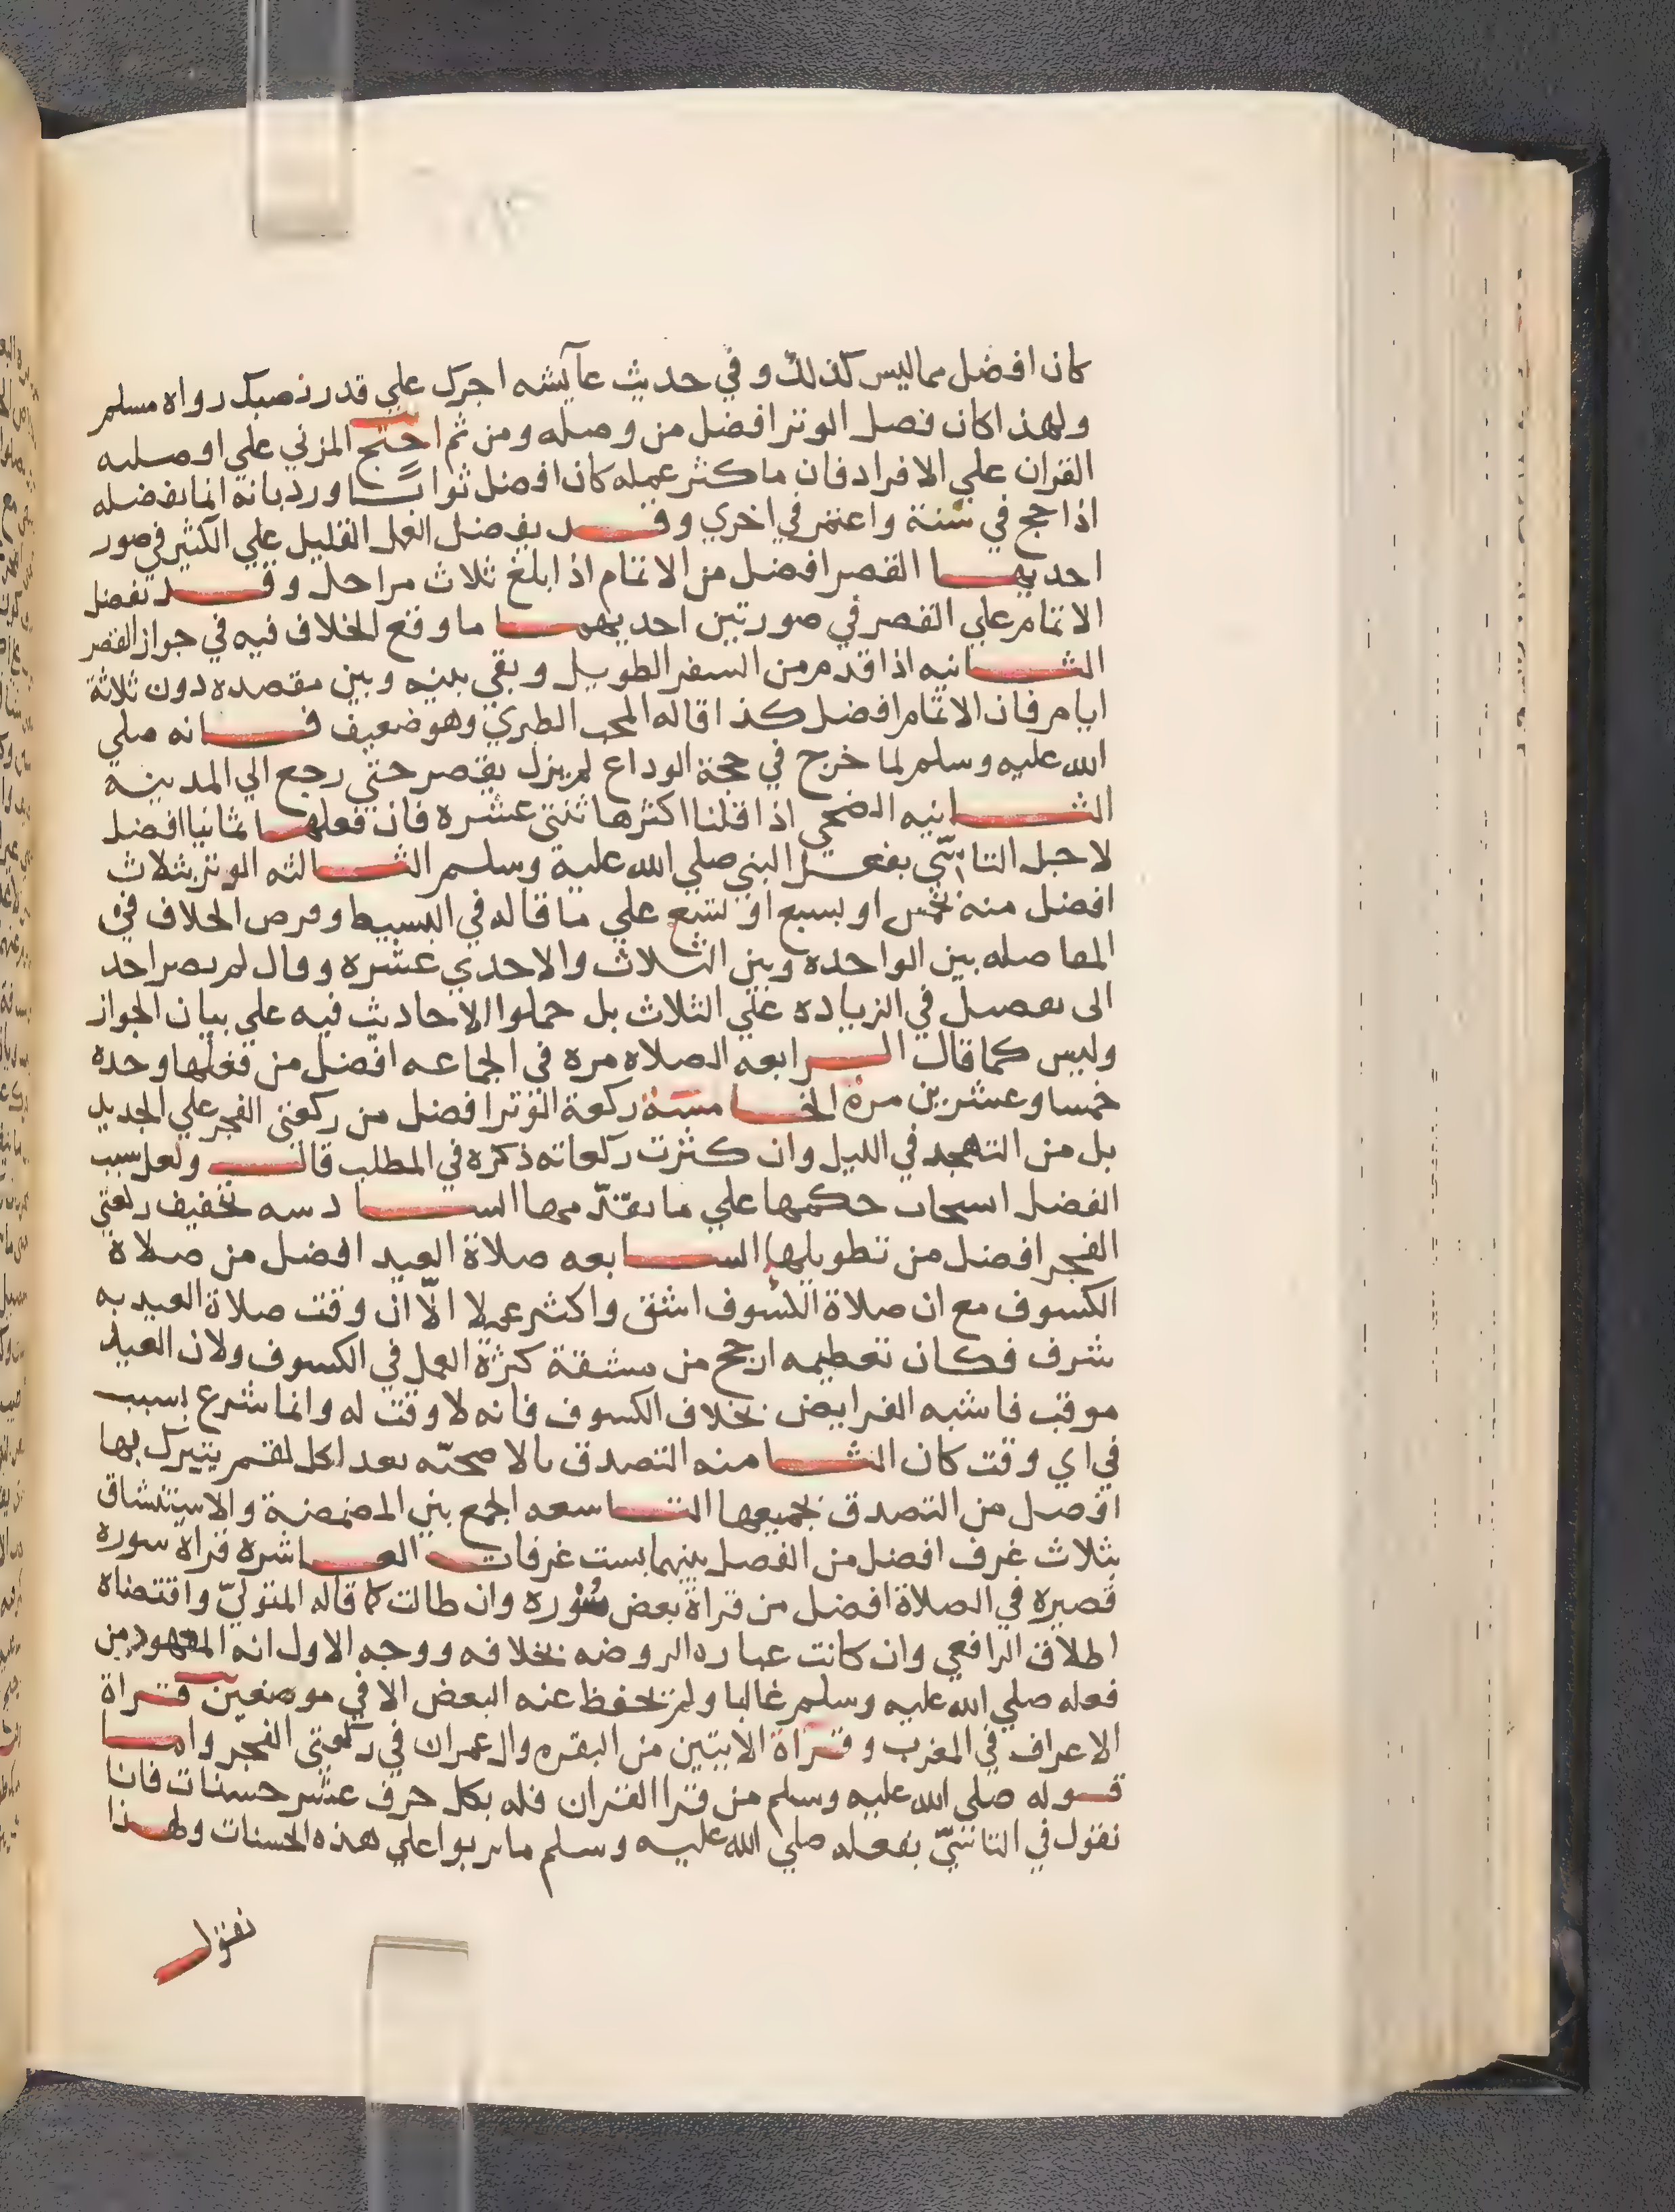 كان افضل مما ليس كذلك وفي حديث عآيشه اجرك علي قدر نصبك رواه مسلم
ولهذا كان فصل الوتر افضل من وصله ومن ثم احتج المزني علي اوصليه
القران علي الافراد فان ما كثر عمله كان افضل ثوابًا ورد بانه انما يفضله
اذا حج في سنة واعتمر في اخري وقد يفضل العمل القليل علي الكثير في صور
احديها القصر افضل من الاتمام اذا بلغ ثلاث مراحل وقد تفضل
الاتمام علي القصر في صورتين احديهما ما وقع الخلاف فيه في جواز القصر
الثانيه اذا قدم من السفر الطويل وبقي بينه وبين مقصده دون ثلاثة
ايام فان الاتمام افضل كذا قاله المحب الطبري وهو ضعيف فانه صلي
الله عليه وسلم لما خرج في حجة الوداع لم يزل يقصر حتي رجع الي المدينة
الثانيه الضحي اذا قلنا اكثرها ثنتي عشره فان فعلها ثمانيا افضل
لاجل التاسّي بفعل النبي صلي الله عليه وسلم الثالثه الوتر بثلاث
افضل منه بخمس او بسبع او بتسع علي ما قاله في البسيط وفرض الخلاف في
المفاصله بين الواحده وبين الثلاث والاحدي عشره وقال لم يصر احد
الى تفضيل في الزياده علي الثلاث بل حملوا الاحاديث فيه علي بيان الجواز
وليس كما قال الرابعه الصلاه مرة في الجماعه افضل من فعلها وحده
خمسا وعشرين مرة الخامسة ركعة الوتر افضل من ركعتي الفجر علي الجديد
بل من التهجد في الليل وان كثرت ركعاته ذكره في المطلب قال ولعل سبب
الفضل اسحاب حكمها علي ما تقدّمها السادسه تخفيف ركعتي
الفجر افضل من تطويلها السابعه صلاة العيد افضل من صلاة
الكسوف مع ان صلاة الكسوف اشق واكثر عملا الّا ان وقت صلاة العيد به
شرف فكان تعظيمه ارجح من مشقة كثرة العمل في الكسوف ولان العيد
موقت فاشبه الفرايض بخلاف الكسوف فانه لا وقت له وانما شرع بسبب
في اي وقت كان الثامنه التصدق بالاضحيّه بعد اكل لقم يتبرك بها
افضل من التصدق بجميعها التاسعه الجمع بين المضمضة والاستنشاق
بثلاث غرف افضل من الفصل بينهما بست غرفات العاشره قراة سوره
قصيره في الصلاة افضل من قراة بعض سُوره وان طالت كما قاله المتوليّ واقتضاه
اطلاق الرافعي وان كانت عباره الروضه بخلافه ووجه الاول انه المعهود من
فعله صلي الله عليه وسلم غالبا ولم يحفظ عنه البعض الا في موضعين قراة
الاعراف في المغرب وقراة الايتين من البقره وال عمران في ركعتي الفجر واما
قوله صلي الله عليه وسلم من قرا القران فله بكل حرف عشر حسنات فانا
نقول في التاسّيّ بفعله صلي الله عليه وسلم ما يربوا علي هذه الحسنات ولهذا
نقول